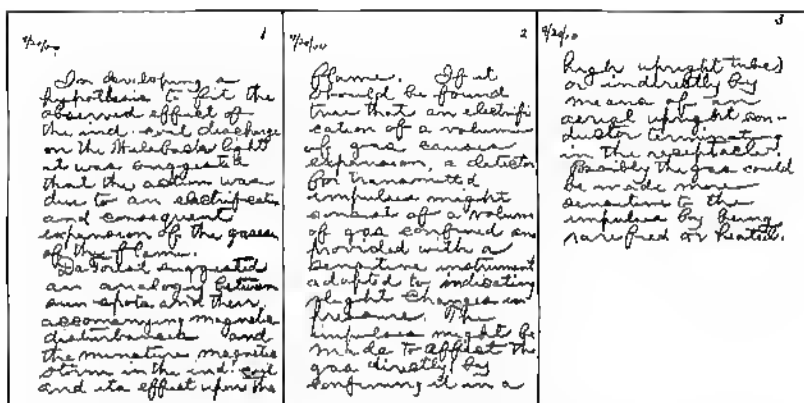 1
9/20/00
In developing a
hypothesis to fit the
observed effect of
the ind. coil discharge
on the Welsbach light
it was suggested
that the action was
due to an electrification
and consequent
expansion of the gases
of the flame.
De Forest suggested
an analogy between
sun spots and their
accomanying magnetic
disturbances and
the minature magnetic
storm in the ind. coil
and its effect upon the
2
9/20/00
flame. If it
should be found
true that an electrifi
cation of a volume
of gas causes
expansion, a detector
for transmitted
impulses might
consist of a volume
of gas confined and
provided with a
sensitive instrument
adapted to indicating
slight changes in
pressure. The
impulses might be
made to affect the
gas directly by
confining it in a
3
9/20/00
high upright tube)
or indirectly by
means of an
aerial upright con-
ductor terminating
in the receptacle.
Possibly the gas could
be made more
sensitive to the
impulses by being
rarefied or heated.